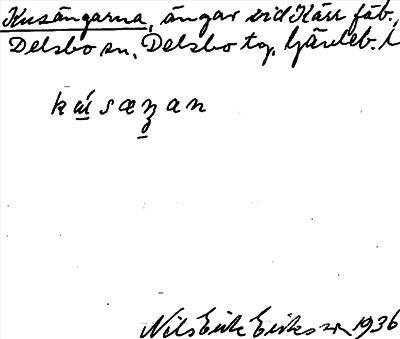 Kusängarna, ängar vid Kärr fäb.
Delsbo sn, Delsbo tg, Gävleb. l
kúsæŋan
Nils Erik Eriksson 1936